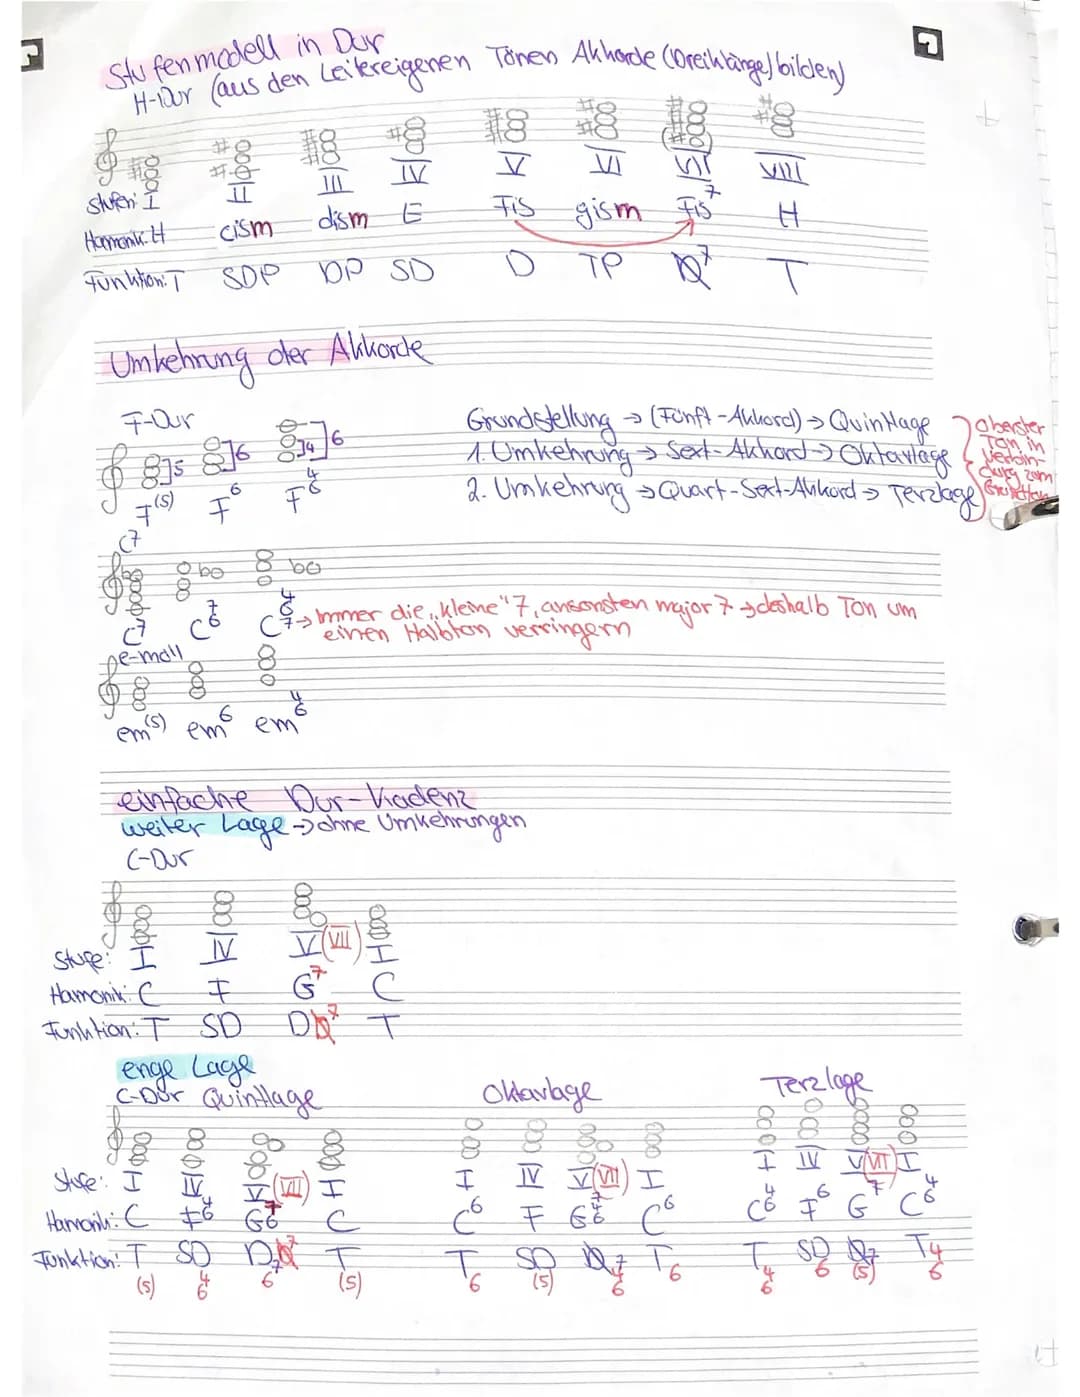 Stufenmodell in Dur
H-Dur (aus den Leitereigenen Tönen Akkorde (Dreiklänge) bilden)
Stufen: I II III IV V VI VII VIII
Harmonik: H cism dism E Fis gism Fis7 H
Funktion: T SDP DP SD D TP D7 T
Umkehrung der Akkorde
F-Dur
]5 ]6 ]4 ]6
F(5) F6 F46
Grundstellung → (Fünft-Akkord) → Quintlage
1. Umkehrung → Sext-Akkord → Oktavlage
2. Umkehrung → Quart-Sext-Akkord → Terzlage
Oberster
Ton in
Verbin-
dung zum
Grundton
C7
C7 C76 C467 → Immer die "kleine" 7, ansonsten major 7 → deshalb Ton um
einen Halbton verringern
e-moll
em(5) em6 em46
einfache Dur-Kadenz
weiter Lage → ohne Umkehrungen
C-Dur
Stufe: I IV V (VII) I
Hamonik: C F G7 C
Funktion: T SD D D7 T
enge Lage
C-Dur Quintlage Oktavlage Terzlage
Stufe: I IV V (VII) I I IV V (VII) I I IV V (VII) I
Harmonik: C F46 G76 C C6 F G746 C6 C46 F6 G7 C46
Funktion: T(5) SD46 D76 D7 T(5) T6 SD(5) D746 T6 T46 SD6 D7(5) T46